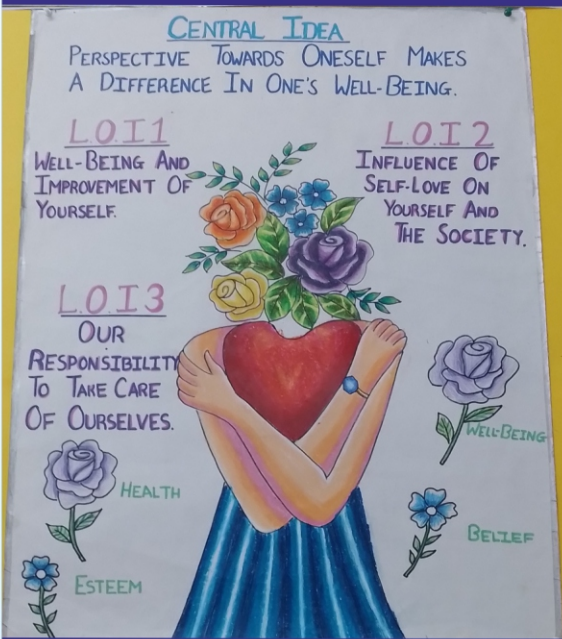 CENTRAL IDEA
PERSPECTIVE TOWARDS ONESELF MAKES
A DIFFERENCE IN ONE'S WELL-BEING.
L.O.I 1
WELL-BEING AND
IMPROVEMENT OF
YOURSELF.
L.O.I 2
INFLUENCE OF
SELF-LOVE ON
YOURSELF AND
THE SOCIETY.
L.O.I 3
OUR
RESPONSIBILITY
TO TAKE CARE
OF OURSELVES.
WELL-BEING
HEALTH
BELIEF
ESTEEM